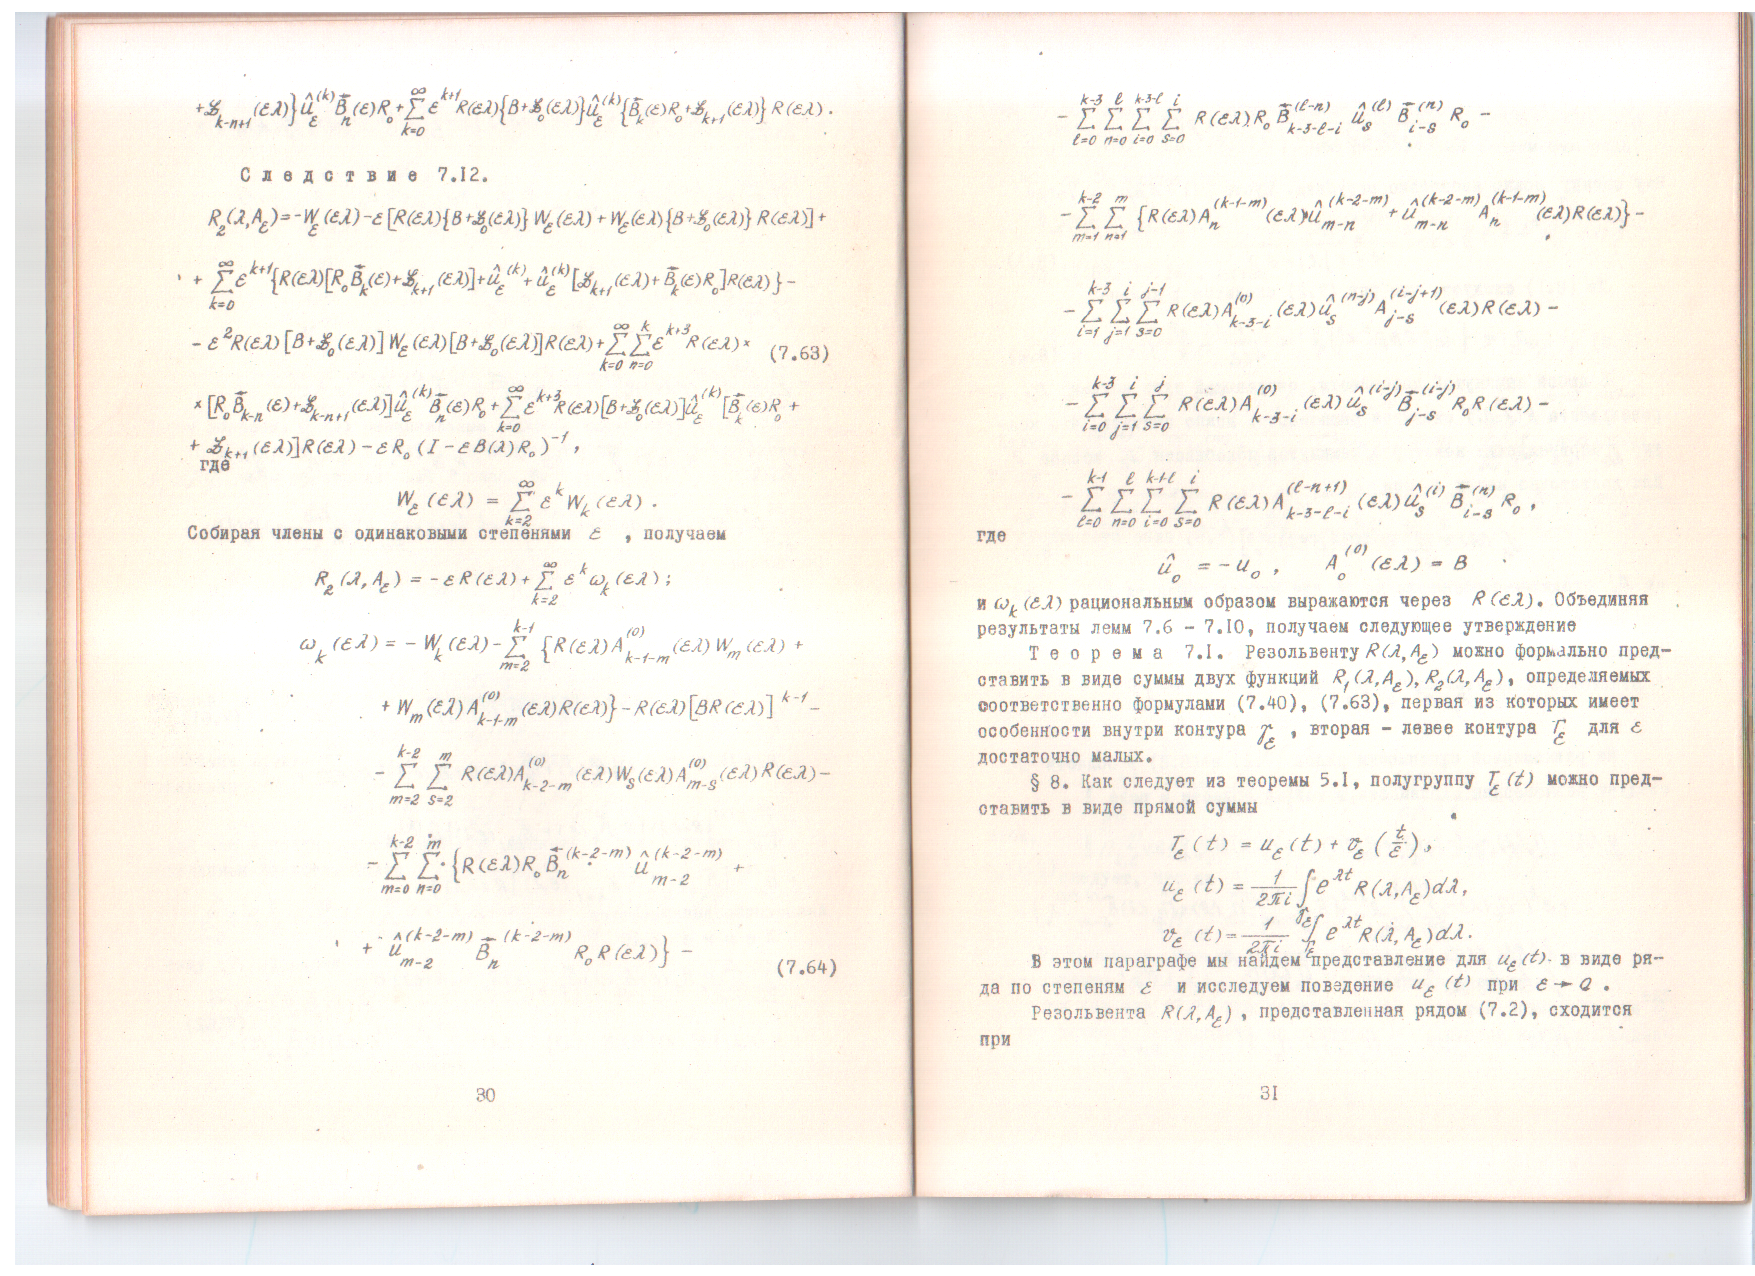 +𝓛_{k-n+1}(ελ)}û_ε^{(k)} B̄_n(ε)R_o + ∑_{k=0}^{∞} ε^{k+1} R(ελ){B+𝓛_o(ελ)}û_ε^{(k)}{B̄_k(ε)R_o+𝓛_{k+1}(ελ)}R(ελ).
Следствие 7.12.
R_2(λ,A_ε)=-W_ε(ελ)-ε[R(ελ){B+𝓛_o(ελ)}W_ε(ελ)+W_ε(ελ){B+𝓛_o(ελ)}R(ελ)]+
+ ∑_{k=0}^{∞} ε^{k+1}{R(ελ)[R_o B̄_k(ε)+𝓛_{k+1}(ελ)]+û_ε^{(k)}+û_ε^{(k)}[𝓛_{k+1}(ελ)+B̄_k(ε)R_o]R(ελ)}-
- ε²R(ελ)[B+𝓛_o(ελ)]W_ε(ελ)[B+𝓛_o(ελ)]R(ελ)+∑_{k=0}^{∞} ∑_{n=0}^{k} ε^{k+3} R(ελ)× (7.63)
×[R_o B̄_{k-n}(ε)+𝓛_{k-n+1}(ελ)]û_ε^{(k)} B̄_n(ε)R_o+∑_{k=0}^{∞} ε^{k+3}R(ελ)[B+𝓛_o(ελ)]û_ε^{(k)}[B̄_k(ε)R_o+
+ 𝓛_{k+1}(ελ)]R(ελ)-εR_o(I-εB(λ)R_o)^{-1},
где
W_ε(ελ) = ∑_{k=2}^{∞} ε^k W_k(ελ).
Собирая члены с одинаковыми степенями ε , получаем
R_2(λ,A_ε) = -εR(ελ)+∑_{k=2}^{∞} ε^k ω_k(ελ);
ω_k(ελ) = - W_k(ελ)-∑_{m=2}^{k-1} {R(ελ)A_{k-1-m}^{(0)}(ελ)W_m(ελ) +
+ W_m(ελ)A_{k-1-m}^{(0)}(ελ)R(ελ)}-R(ελ)[BR(ελ)]^{k-1}-
- ∑_{m=2}^{k-2} ∑_{s=2}^{m} R(ελ)A_{k-2-m}^{(0)}(ελ)W_s(ελ)A_{m-s}^{(0)}(ελ)R(ελ)-
- ∑_{m=0}^{k-2} ∑_{n=0}^{m} {R(ελ)R_o B̄_n^{(k-2-m)} û_{m-2}^{(k-2-m)} +
+ û_{m-2}^{(k-2-m)} B̄_n^{(k-2-m)} R_o R(ελ)} - (7.64)
30
- ∑_{ℓ=0}^{k-3} ∑_{n=0}^{ℓ} ∑_{i=0}^{k-3-ℓ} ∑_{s=0}^{i} R(ελ)R_o B̄_{k-3-ℓ-i}^{(ℓ-n)} û_s^{(ℓ)} B̄_{i-s}^{(n)} R_o -
- ∑_{m=1}^{k-2} ∑_{n=1}^{m} {R(ελ)A_n^{(k-1-m)}(ελ)û_{m-n}^{(k-2-m)} + û_{m-n}^{(k-2-m)} A_n^{(k-1-m)}(ελ)R(ελ)}-
- ∑_{i=1}^{k-3} ∑_{j=1}^{i} ∑_{s=0}^{j-1} R(ελ)A_{k-3-i}^{(0)}(ελ)û_s^{(n-j)} A_{j-s}^{(i-j+1)}(ελ)R(ελ) -
- ∑_{i=0}^{k-3} ∑_{j=1}^{i} ∑_{s=0}^{j} R(ελ)A_{k-3-i}^{(0)}(ελ)û_s^{(i-j)} B̄_{j-s}^{(i-j)} R_o R(ελ)-
- ∑_{ℓ=0}^{k-1} ∑_{n=0}^{ℓ} ∑_{i=0}^{k-1-ℓ} ∑_{s=0}^{i} R(ελ)A_{k-3-ℓ-i}^{(ℓ-n+1)}(ελ)û_s^{(i)} B̄_{i-s}^{(n)} R_o ,
где
û_o = -u_o , A_o^{(0)}(ελ) = B
и ω_k(ελ) рациональным образом выражаются через R(ελ). Объединяя
результаты лемм 7.6 - 7.10, получаем следующее утверждение
Теорема 7.1. Резольвенту R(λ,A_ε) можно формально пред-
ставить в виде суммы двух функций R_1(λ,A_ε), R_2(λ,A_ε), определяемых
соответственно формулами (7.40), (7.63), первая из которых имеет
особенности внутри контура γ_ε , вторая - левее контура Γ_ε для ε
достаточно малых.
§ 8. Как следует из теоремы 5.1, полугруппу T_ε(t) можно пред-
ставить в виде прямой суммы
T_ε(t) = u_ε(t) + v_ε(t/ε),
u_ε(t) = 1/2πi ∫_{γ_ε} e^{λt} R(λ,A_ε)dλ,
v_ε(t) = 1/2πi ∫_{Γ_ε} e^{λt} R(λ,A_ε)dλ.
В этом параграфе мы найдем представление для u_ε(t) в виде ря-
да по степеням ε и исследуем поведение u_ε(t) при ε → 0 .
Резольвента R(λ,A_ε) , представленная рядом (7.2), сходится
при
31